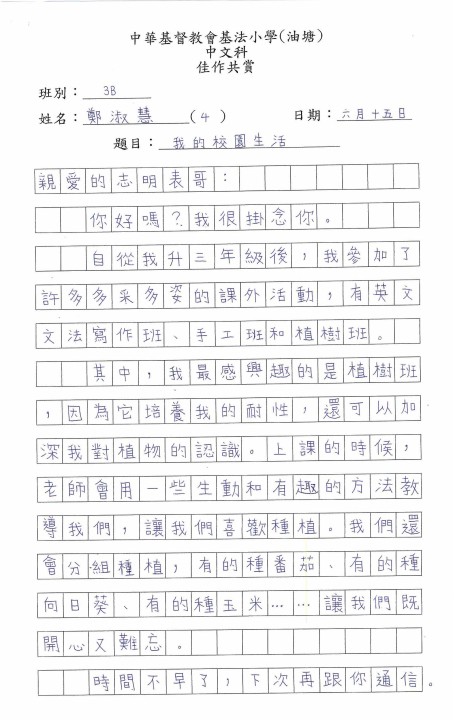 中華基督教會基法小學(油塘)
中文科
佳作共賞
班別：3B
姓名：鄭淑慧(4) 日期：六月十五日
題目：我的校園生活
親愛的志明表哥：
你好嗎？我很掛念你。
自從我升三年級後，我參加了
許多多采多姿的課外活動，有英文
文法寫作班、手工班和植樹班。
其中，我最感興趣的是植樹班
，因為它培養我的耐性，還可以加
深我對植物的認識。上課的時候，
老師會用一些生動和有趣的方法教
導我們，讓我們喜歡種植。我們還
會分組種植，有的種番茄、有的種
向日葵、有的種玉米……讓我們既
開心又難忘。
時間不早了，下次再跟你通信。